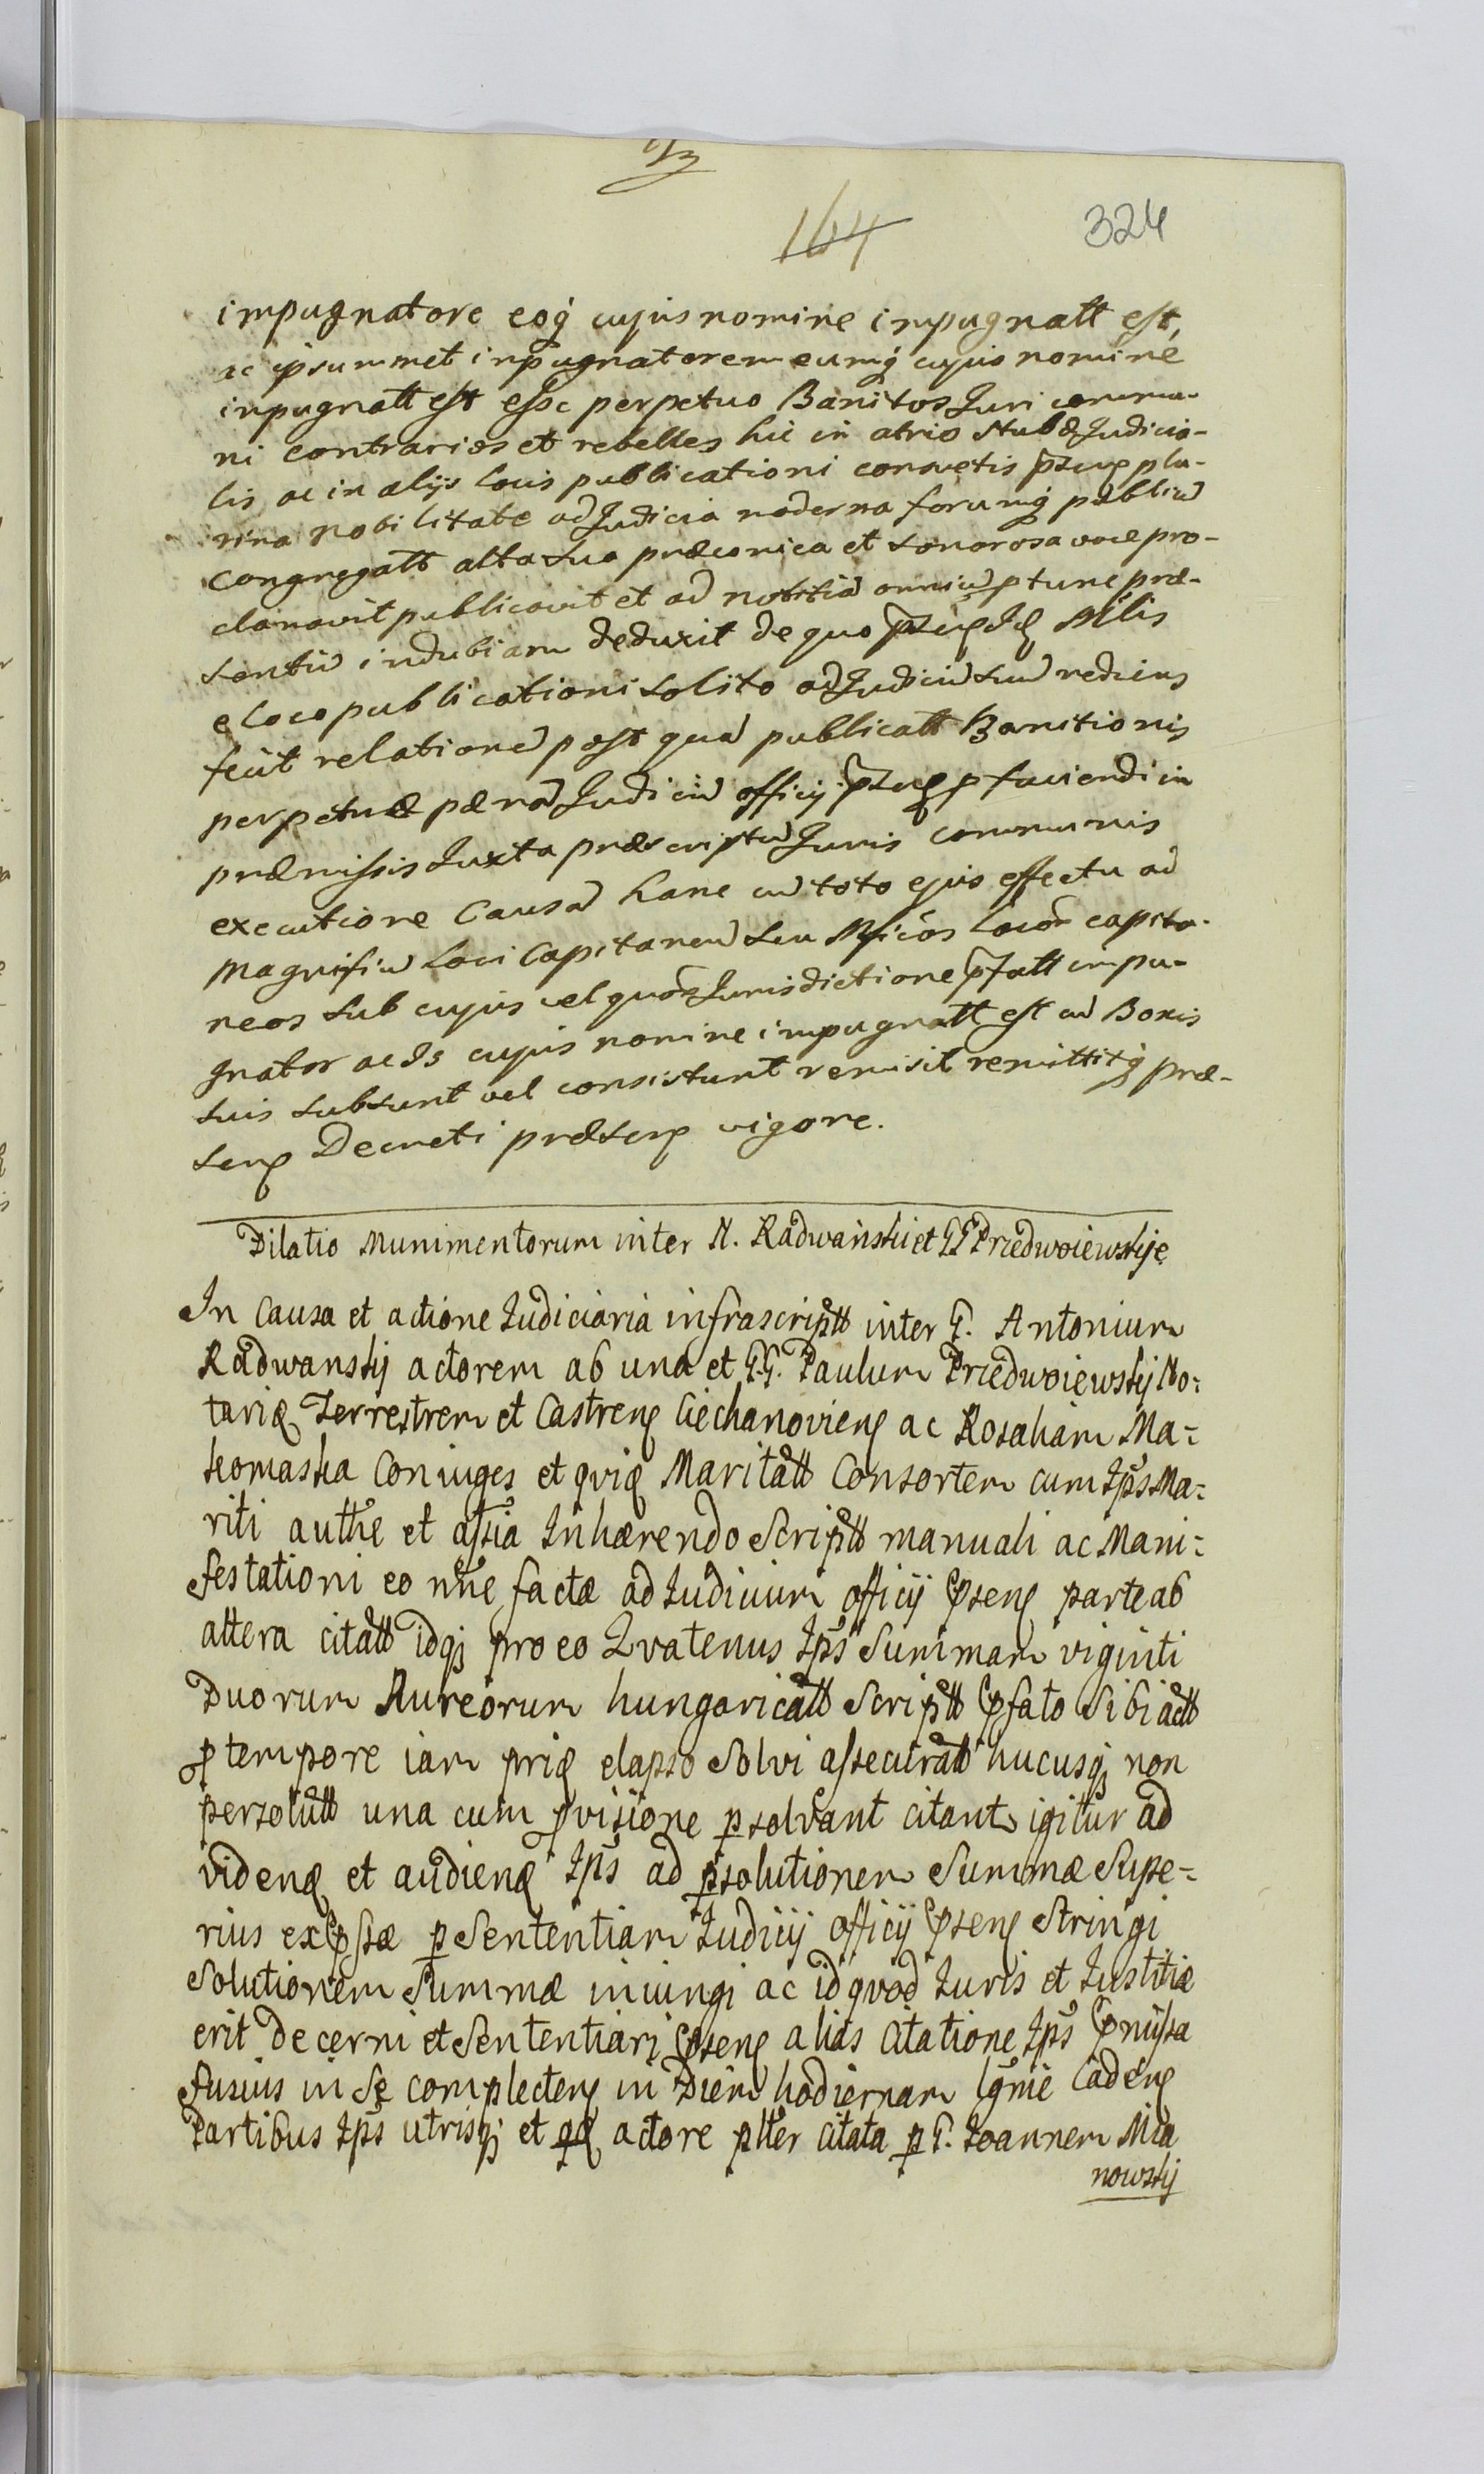 164
324
impugnatore eoq́ cujus nomine impugnatt est,
ac ipsummet inpugnatorem eumq́ cujus nomine
inpugnatt est esse perpetuo Banitos Juri commu-
ni contrarios et rebelles hic in atrio Stubæ Judicia-
lis ac in alijs locis publicationi consuetis plu-
rima nobilitate ad Judicia moderna forumq́ publicũ
congregatt alta sua præconica et sonorosa voce pro-
clamavit publicavit et ad notitiã omniũ p tunc præ-
sentiũ indubiam deduxit de quo Mlis
e loco publicationi solito ad Judiciũ suũ rediens
fecit relationẽ post quã publicatt Banitionis
perpetuæ pænã Judiciũ officij p faciendi in
præmissis Juxta præscriptũ Juris communis
executione Causã hanc cũ toto ejus effectu ad
Magnificũ loci Capitaneũ seu Mficos locor̃ capita-
neos sub cujus vel quor̃ Jurisdictione pfatt impu-
gnator ac Is cujus nomine impugnatt est cũ Bonis
suis subsunt vel consistunt remisit remittitq́ præ-
sen Decreti præsen vigore.
Dilatio Munimentorum inter N. Radwański et GG Przedwoiewskie
In Causa et actione Iudiciaria infrascriptt inter G. Antonium
Radwanskij actorem ab una et G.G. Paulum Przedwoiewskij No=
tariũ Terrestrem et Castren Ciechanovien ac Rosaliam Ma=
komaska Coniuges et qviđ Maritatt Consortem cum Ips Ma=
riti authe et assia Inhærendo Scriptt manuali ac Mani=
festationi eo nñe factæ ad Iudicium officij psen parte ab
altera citatt idqj pro eo Qvatenus Ips Summam viginti
Duorum Aureorum hungaricatt Scriptt pfato Sibi actt
p tempore iam priđ elapso Solvi assecuratt hucusqj non
persolutt una cum pvisione psolvant citant igitur ad
videnđ et audienđ Ips ad psolutionem Summæ Supe=
rius expssæ p Sententiam Iudicij officij psen Stringi
Solutionem Summæ iniungi ac id qvod Iuris et Iustitiæ
erit decerni et Sententiari psen alias Citatione Ips pmissa
fusius in Se complecten in Diem hodiernam lgme Caden
Partibus Ips utrisqj et actore plter citata p G. Ioannem Mia
nowskij